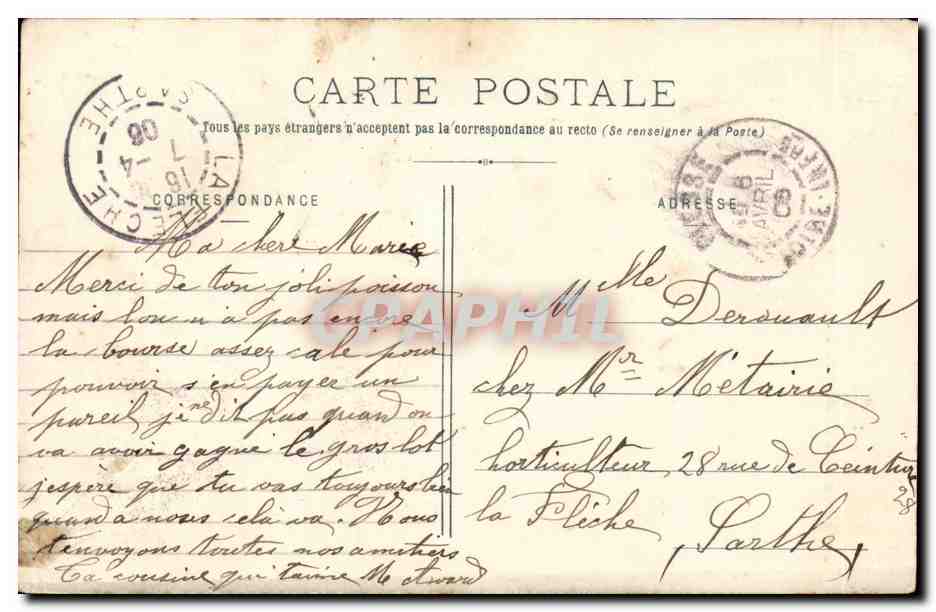 CARTE POSTALE
Tous les pays étrangers n'acceptent pas la correspondance au recto (Se renseigner à la Poste)
LA FLECHE
SARTHE
16
7 -4
06
6
AVRIL
06
LOIRE-INFRE
CORRESPONDANCE
ADRESSE
Ma chere Marie
Merci de ton joli poisson
mais lon n a pas encore
la bourse assez cale pour
pouvoir s'en payer un
pareil, je ne dit pas quand on
va avoir gagné le gros lot
j'espère que tu vas toujours bien
quand a nous cela va. Nous
t'envoyons toutes nos amitiés
Ta cousine qui t'aime M
Mlle Derouault
chez Mr Métairie
horticulteur, 28 rue de Ceinture
28
la Flèche
Sarthe
GRAPHIL